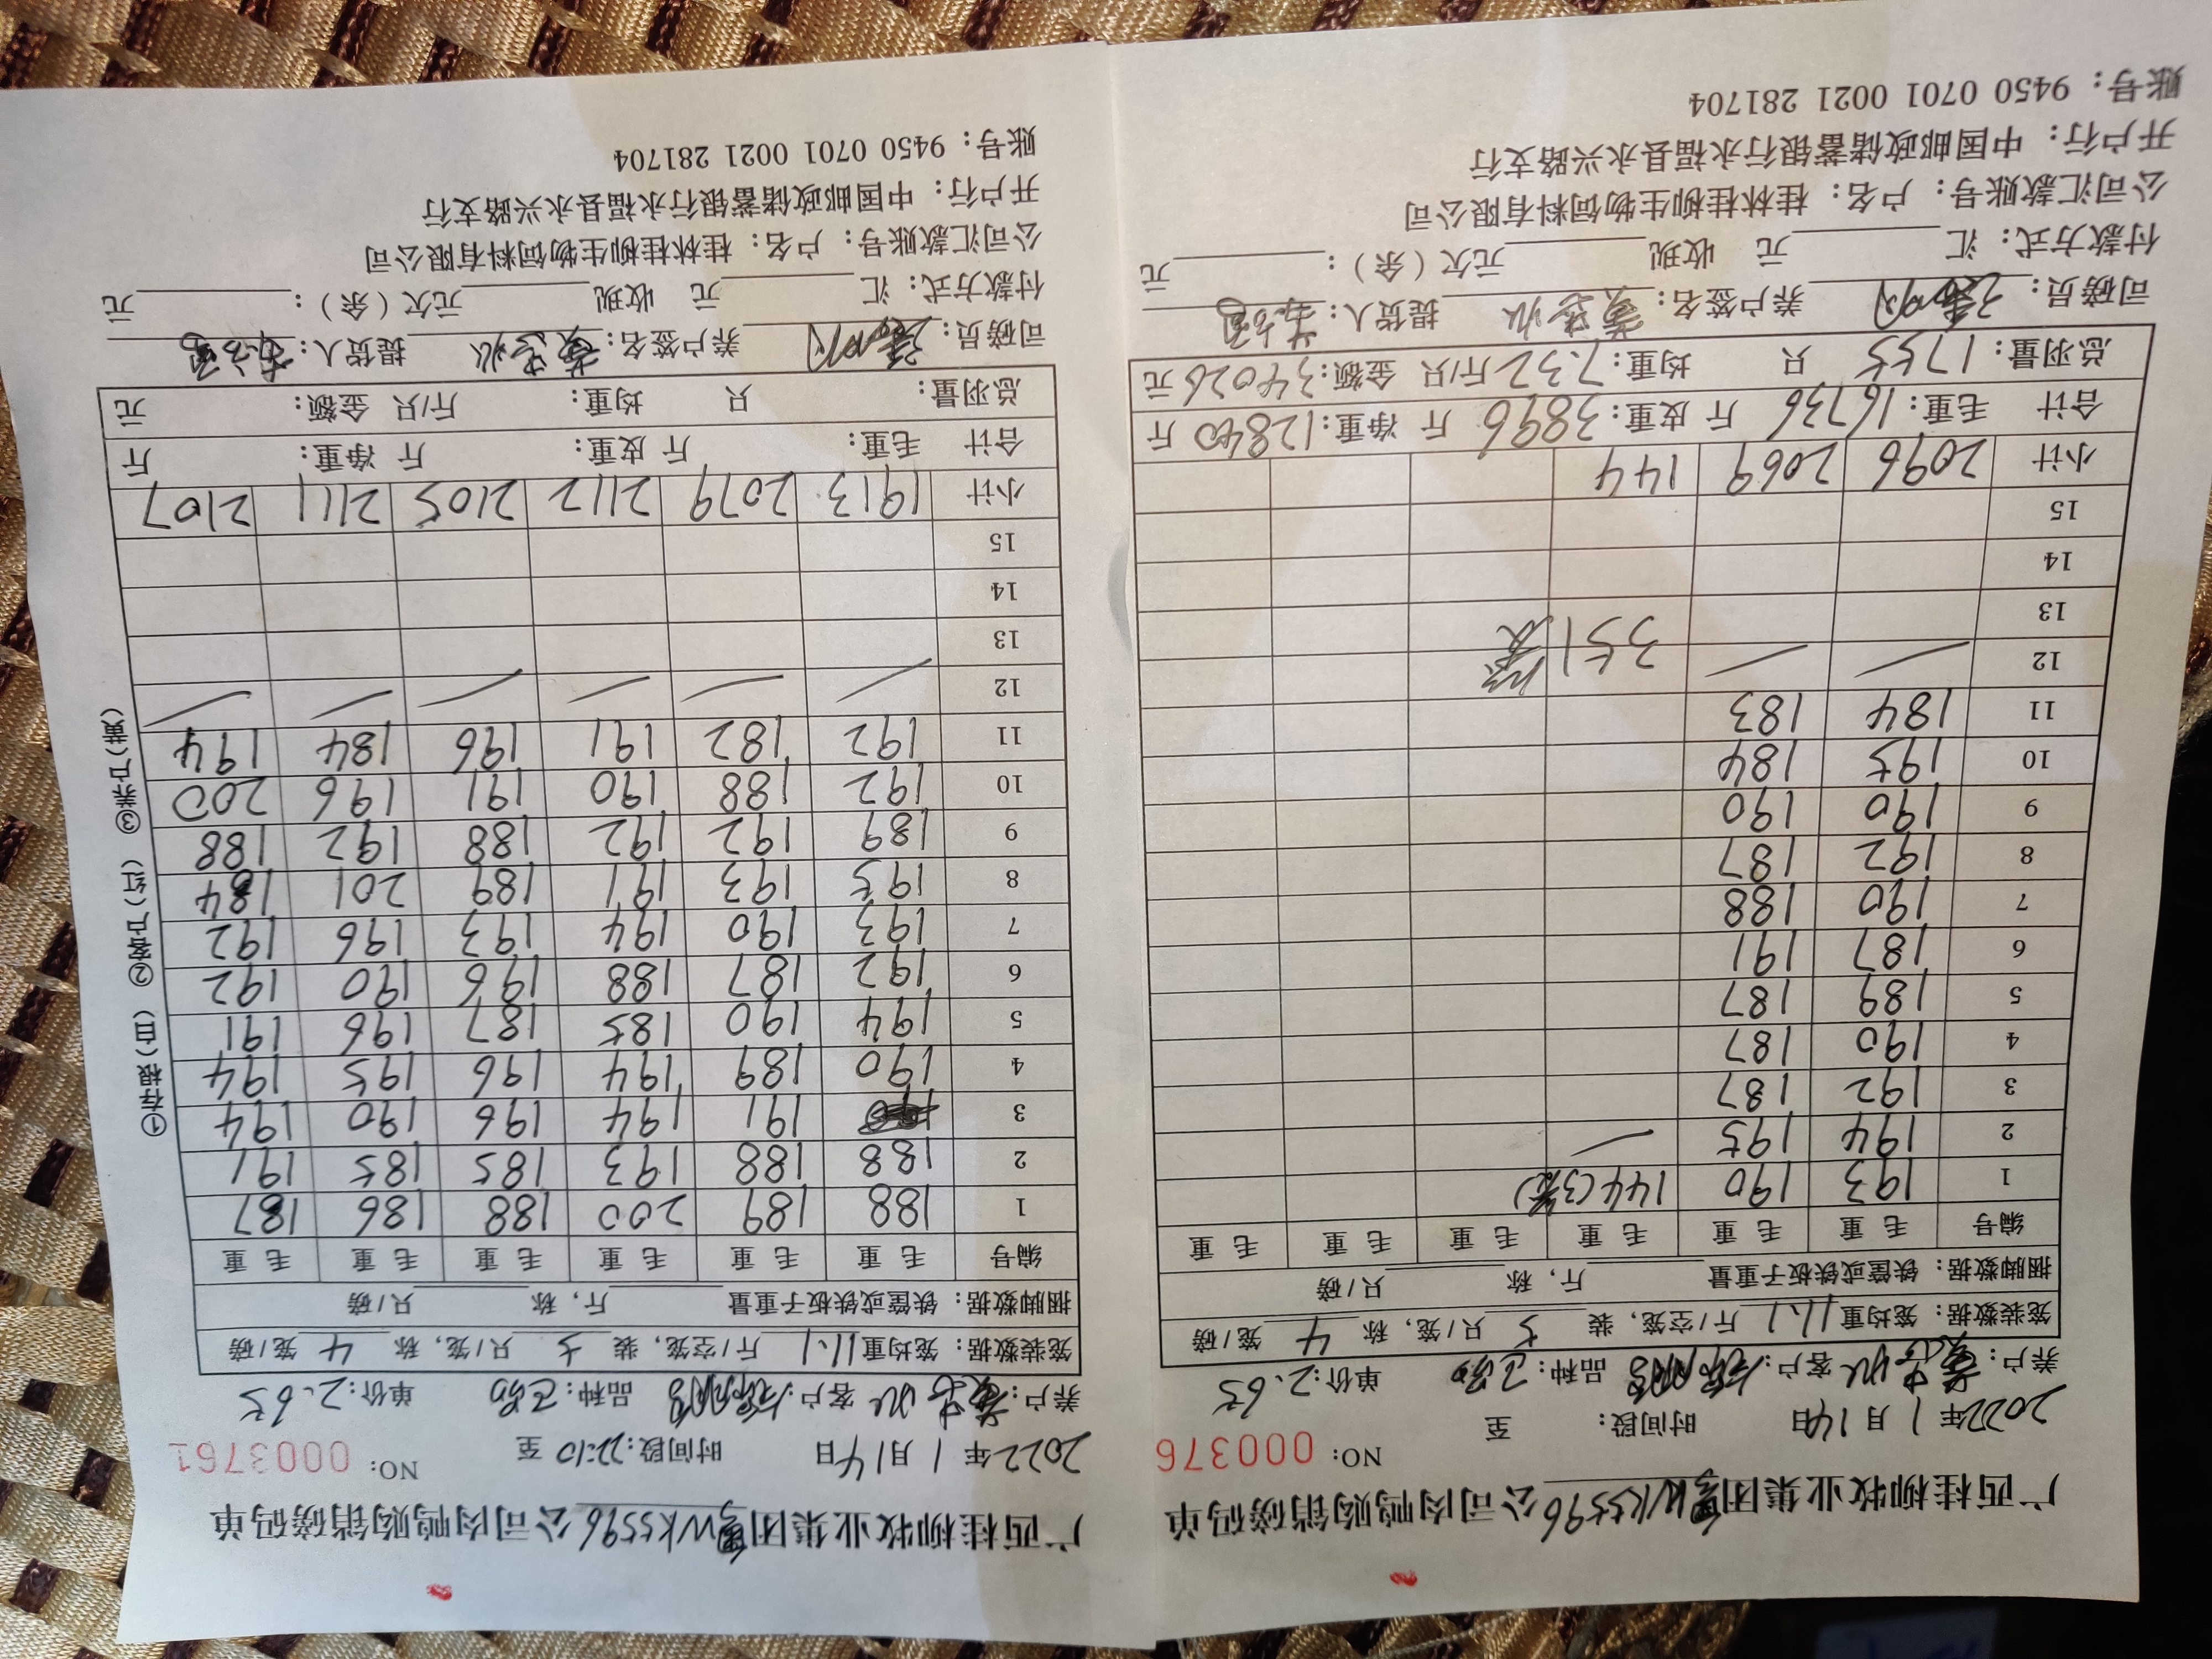 广西桂柳牧业集团WK5596公司肉鸭购销磅码单
2022年1月14日 时间段: 至 NO: 000376
养户: 客户: 品种: 单价: 2.65
笼装数据: 笼均重 11.1 斤/空笼, 装 5 只/笼, 称 4 笼/磅
捆脚数据: 铁筐或铁板子重量 斤, 称 只/磅
编号 毛重 毛重 毛重 毛重 毛重 毛重
1 193 190 144(3笼)
2 194 195
3 192 187
4 190 187
5 189 187
6 187 191
7 190 188
8 192 187
9 190 190
10 195 184
11 184 183
12 351
13
14
15
小计 2096 2069 144
合计 毛重: 16736 斤 皮重: 3896 斤 净重: 12840 斤
总羽量: 1755 只 均重: 7.32 斤/只 金额: 34026 元
司磅员: 养户签名: 提货人:
付款方式: 汇 元 收现 元欠(余): 元
公司汇款账号: 户名: 桂林桂柳生物饲料有限公司
开户行: 中国邮政储蓄银行永福县永兴路支行
账号: 9450 0701 0021 281704
广西桂柳牧业集团WK5596公司肉鸭购销磅码单
2022年1月14日 时间段: 22:10 至 NO: 0003761
养户: 客户: 品种: 单价: 2.65
笼装数据: 笼均重 11.1 斤/空笼, 装 5 只/笼, 称 4 笼/磅
捆脚数据: 铁筐或铁板子重量 斤, 称 只/磅
编号 毛重 毛重 毛重 毛重 毛重 毛重
1 188 189 200 188 186 187
2 188 188 193 185 185 191
3 191 194 196 190 194
4 190 189 194 196 195 194
5 194 190 185 187 196 191
6 192 187 188 196 190 192
7 193 190 194 193 196 192
8 195 193 191 189 201 184
9 189 192 192 188 192 188
10 192 188 190 191 196 200
11 192 182 191 196 184 194
12
13
14
15
小计 1913 2079 2112 2105 2111 2107
合计 毛重: 斤 皮重: 斤 净重: 斤
总羽量: 只 均重: 斤/只 金额: 元
司磅员: 养户签名: 提货人:
付款方式: 汇 元 收现 元欠(余): 元
公司汇款账号: 户名: 桂林桂柳生物饲料有限公司
开户行: 中国邮政储蓄银行永福县永兴路支行
账号: 9450 0701 0021 281704
①存根(白) ②客户(红) ③养户(黄)